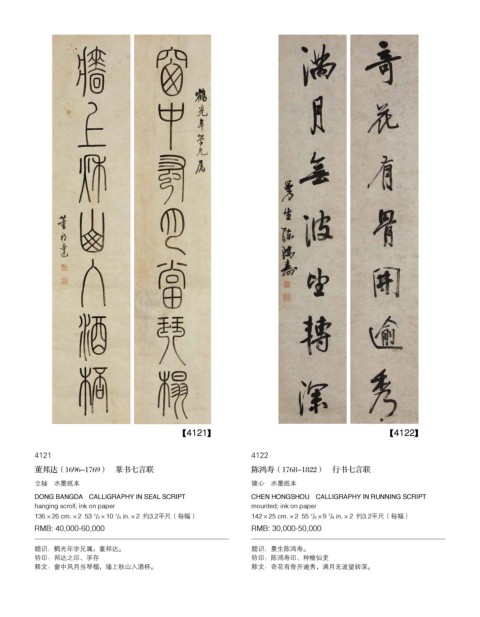 鶴光年學兄屬
窗中風月當琴榻
牆上秌山入酒桮
董邦達
奇花有骨開逾秀
滿月無波望轉深
曼生陳鴻壽
【4121】
【4122】
4121
董邦达（1696–1769） 篆书七言联
立轴 水墨纸本
DONG BANGDA CALLIGRAPHY IN SEAL SCRIPT
hanging scroll; ink on paper
136×26 cm.×2 53 1/2×10 1/4 in.×2 约3.2平尺（每幅）
RMB: 40,000-60,000
题识：鹤光年学兄属，董邦达。
钤印：邦达之印、孚存
释文：窗中风月当琴榻，墙上秋山入酒杯。
4122
陈鸿寿（1768–1822） 行书七言联
镜心 水墨纸本
CHEN HONGSHOU CALLIGRAPHY IN RUNNING SCRIPT
mounted; ink on paper
142×25 cm.×2 55 7/8×9 7/8 in.×2 约3.2平尺（每幅）
RMB: 30,000-50,000
题识：曼生陈鸿寿。
钤印：陈鸿寿印、种榆仙吏
释文：奇花有骨开逾秀，满月无波望转深。